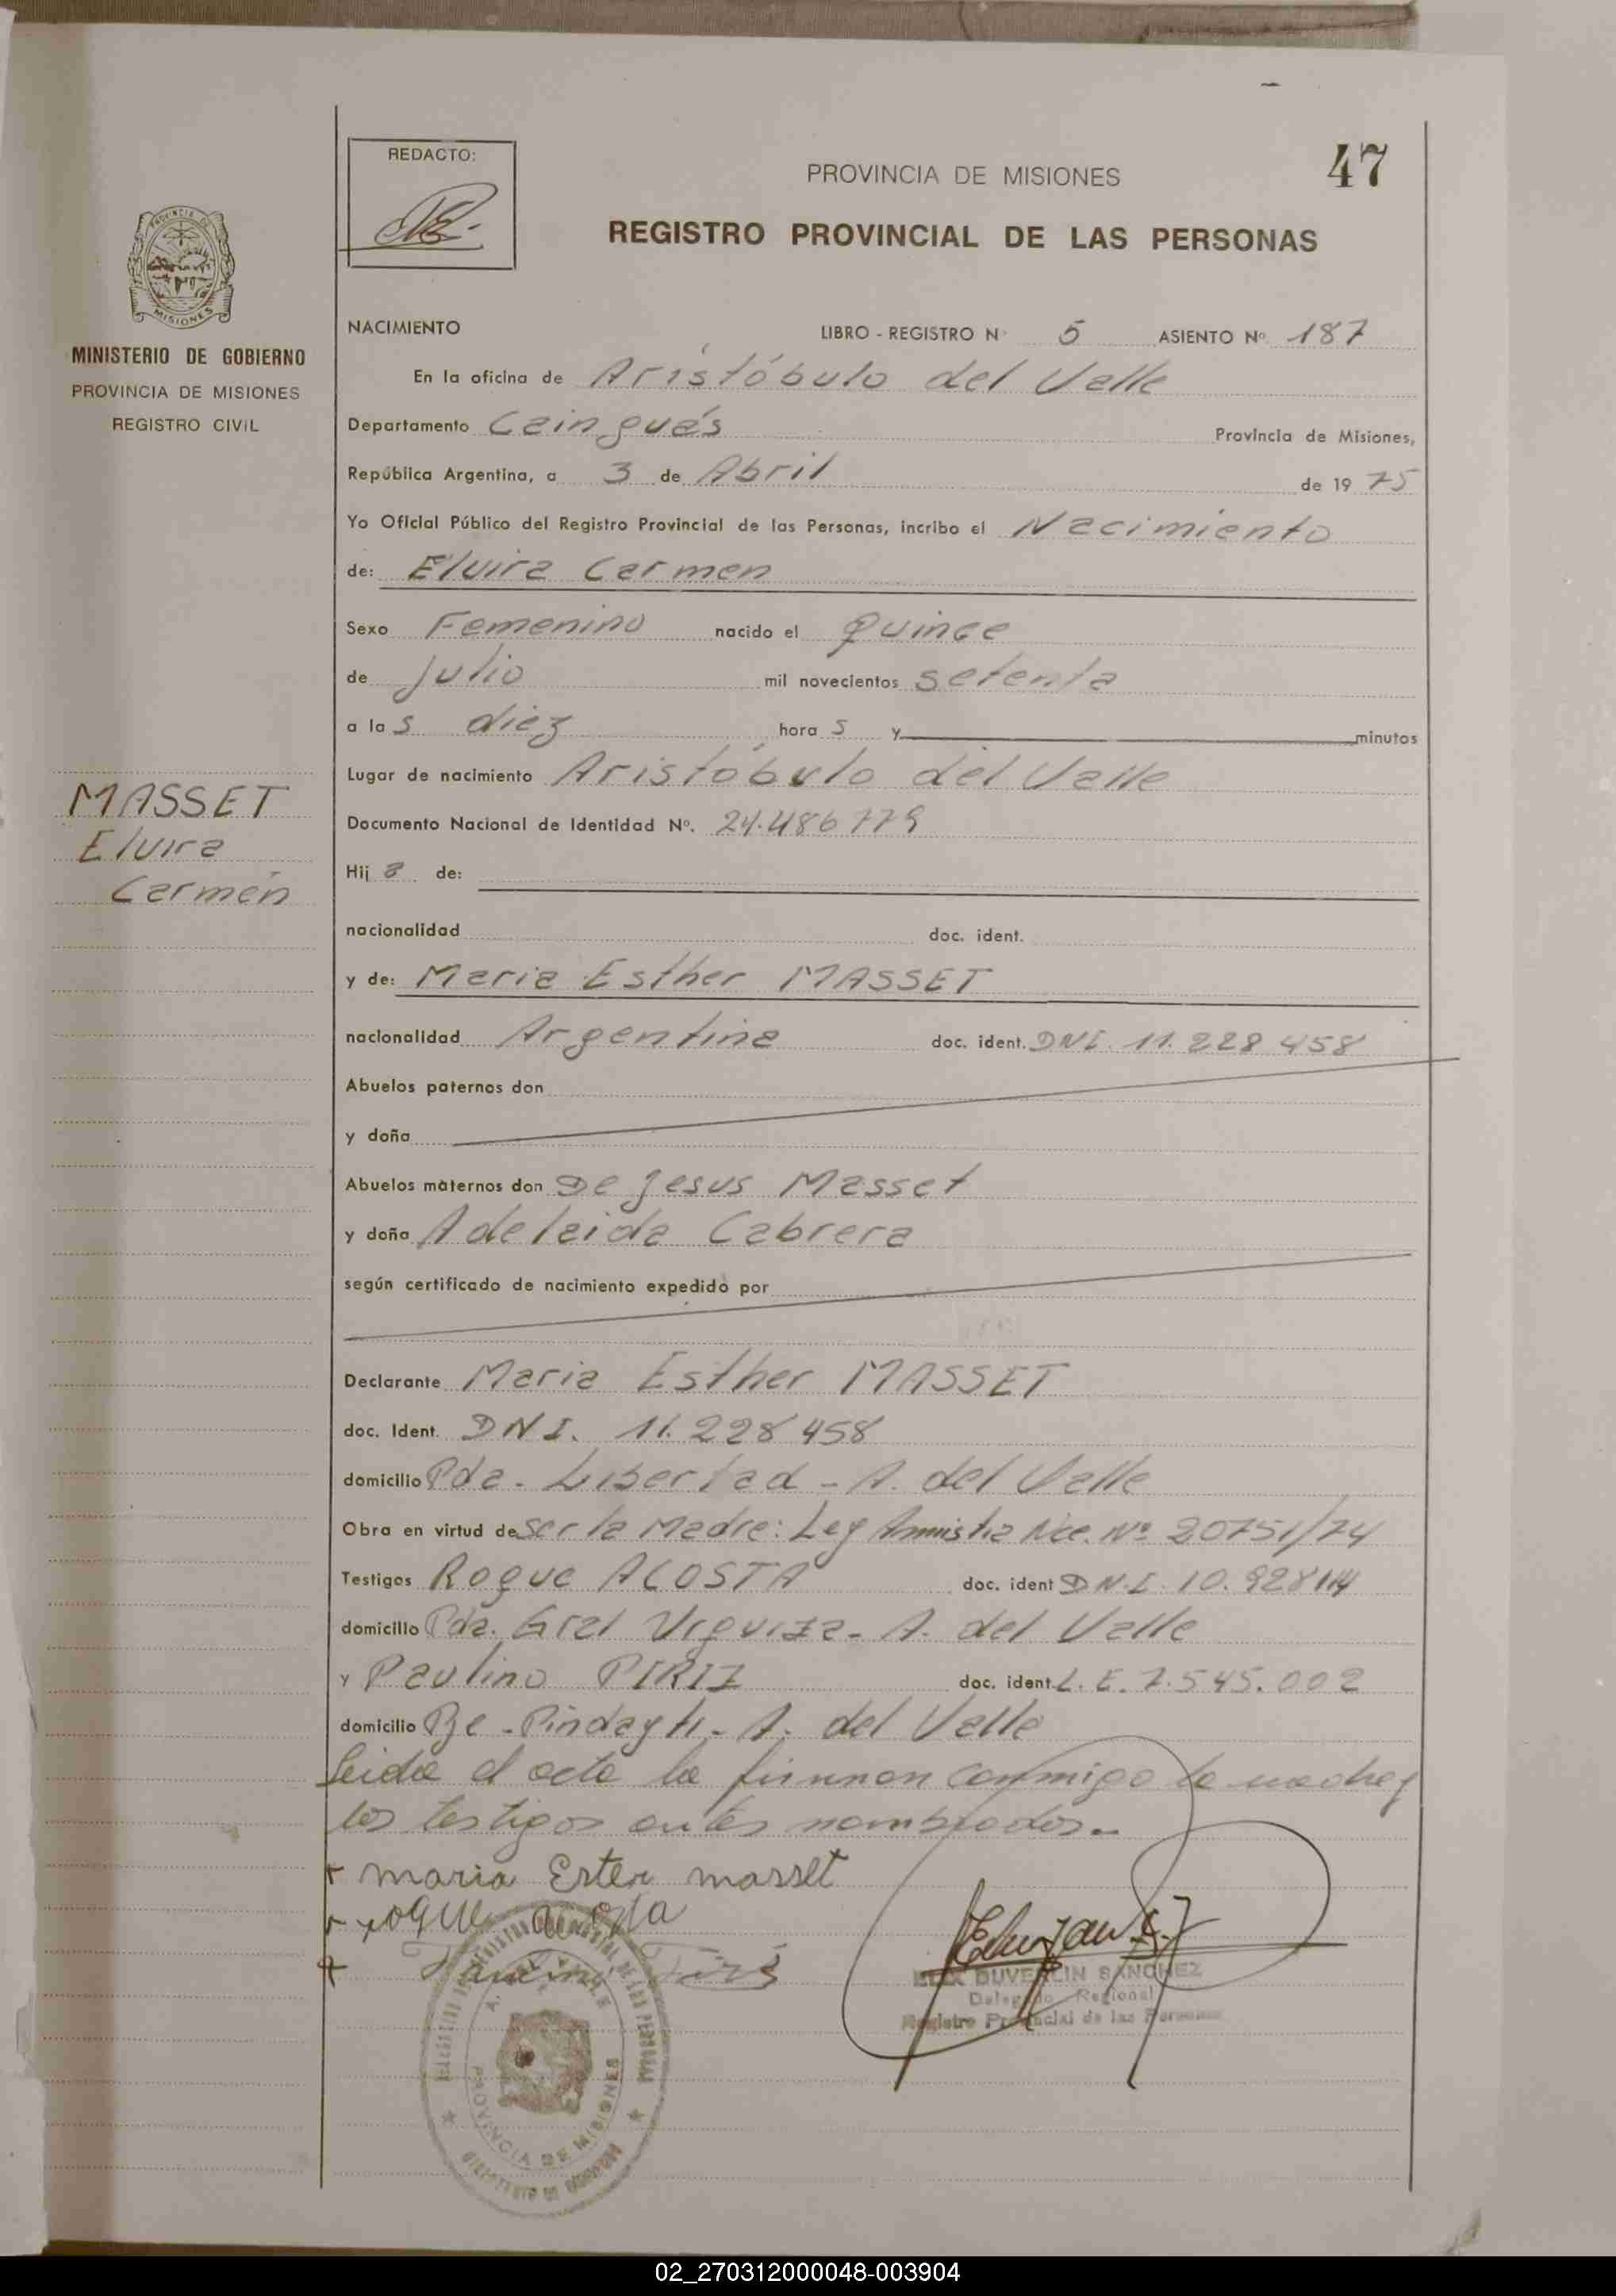 REDACTO:
PROVINCIA DE MISIONES
47
REGISTRO PROVINCIAL DE LAS PERSONAS
MISIONES
MINISTERIO DE GOBIERNO
PROVINCIA DE MISIONES
REGISTRO CIVIL
MASSET
Elvira
Carmen
NACIMIENTO LIBRO - REGISTRO Nº 5 ASIENTO Nº 187
En la oficina de Aristóbulo del Valle
Departamento Cainguás Provincia de Misiones,
República Argentina, a 3 de Abril de 1975
Yo Oficial Público del Registro Provincial de las Personas, incribo el Nacimiento
de: Elvira Carmen
Sexo Femenino nacido el Quince
de Julio mil novecientos setenta
a las diez horas y minutos
Lugar de nacimiento Aristóbulo del Valle
Documento Nacional de Identidad Nº. 24.486779
Hija de:
nacionalidad doc. ident.
y de: Maria Esther MASSET
nacionalidad Argentina doc. ident. DNI. 11.228 458
Abuelos paternos don
y doña
Abuelos maternos don De Jesus Masset
y doña Adelaida Cabrera
según certificado de nacimiento expedido por
Declarante Maria Esther MASSET
doc. Ident. DNI. 11.228 458
domicilio Pda. Libertad - A. del Valle
Obra en virtud de ser la Madre: Ley Amnistia Nac. Nº 20751/74
Testigos Roque ACOSTA doc. ident DNI. 10.928114
domicilio Pda. Gral Urquiza - A. del Valle
y Paulino PIRIZ doc. ident L.E. 7.545.002
domicilio - A. del Valle
Leida el acta la firman conmigo la madre y
los testigos antes nombrados.-
maria Ester masset
roque
DUVERLIN SANCHEZ
Delegado Regional
Registro Provincial de las Personas
PROVINCIA DE MISIONES
02_270312000048-003904